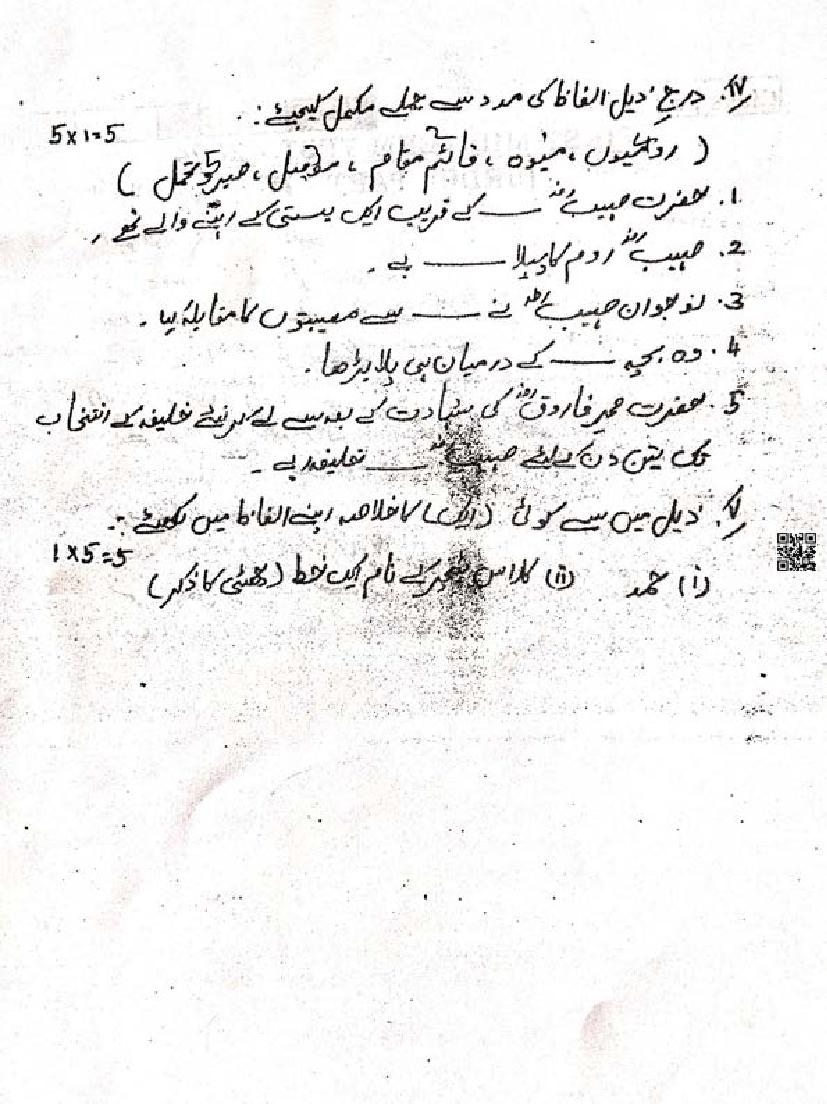 IV. درج ذیل الفاظ کی مدد سے جملے مکمل کیجیئے :.
5x1=5
( رومیوں ، میوہ ، قائم مقام ، موصل ، صبر و تحمل )
1. حضرت صہیبؓ ـــــ کے قریب ایک بستی کے رہنے والے تھے ۔
2. صہیبؓ روم کا پہلا ـــــ ہے ۔
3. نوجوان صہیبؓ نے ـــــ سے مصیبتوں کا مقابلہ کیا ۔
4. وہ بچہ ـــــ کے درمیان ہی پلا بڑھا ۔
5. حضرت عمر فاروقؓ کی شہادت کے بعد سے لے کر نئے خلیفہ کے انتخاب
تک تین دن کے لئے صہیبؓ ـــــ خلیفہ رہے ۔
V. ذیل میں سے کوئی (ایک) کا خلاصہ اپنے الفاظ میں لکھئے :.
1x5=5
(i) حمد (ii) کلاس ٹیچر کے نام ایک خط (چھٹی کا ذکر)